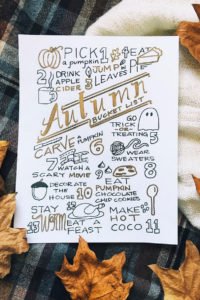 PICK 1 EAT
a pumpkin PIE
2 DRINK 4 JUMP
APPLE IN
CIDER LEAVES
3
Autumn
BUCKET LIST
GO
TRICK
-OR-
TREATING 5
CARVE
a PUMPKIN
6
7 WEAR
SWEATERS
WATCH A 8
SCARY MOVIE 9
DECORATE EAT
THE PUMPKIN
HOUSE 10 CHOCOLATE
CHIP COOKIES
STAY 12 MAKE
WARM HOT
13 EAT A COCO 11
FEAST